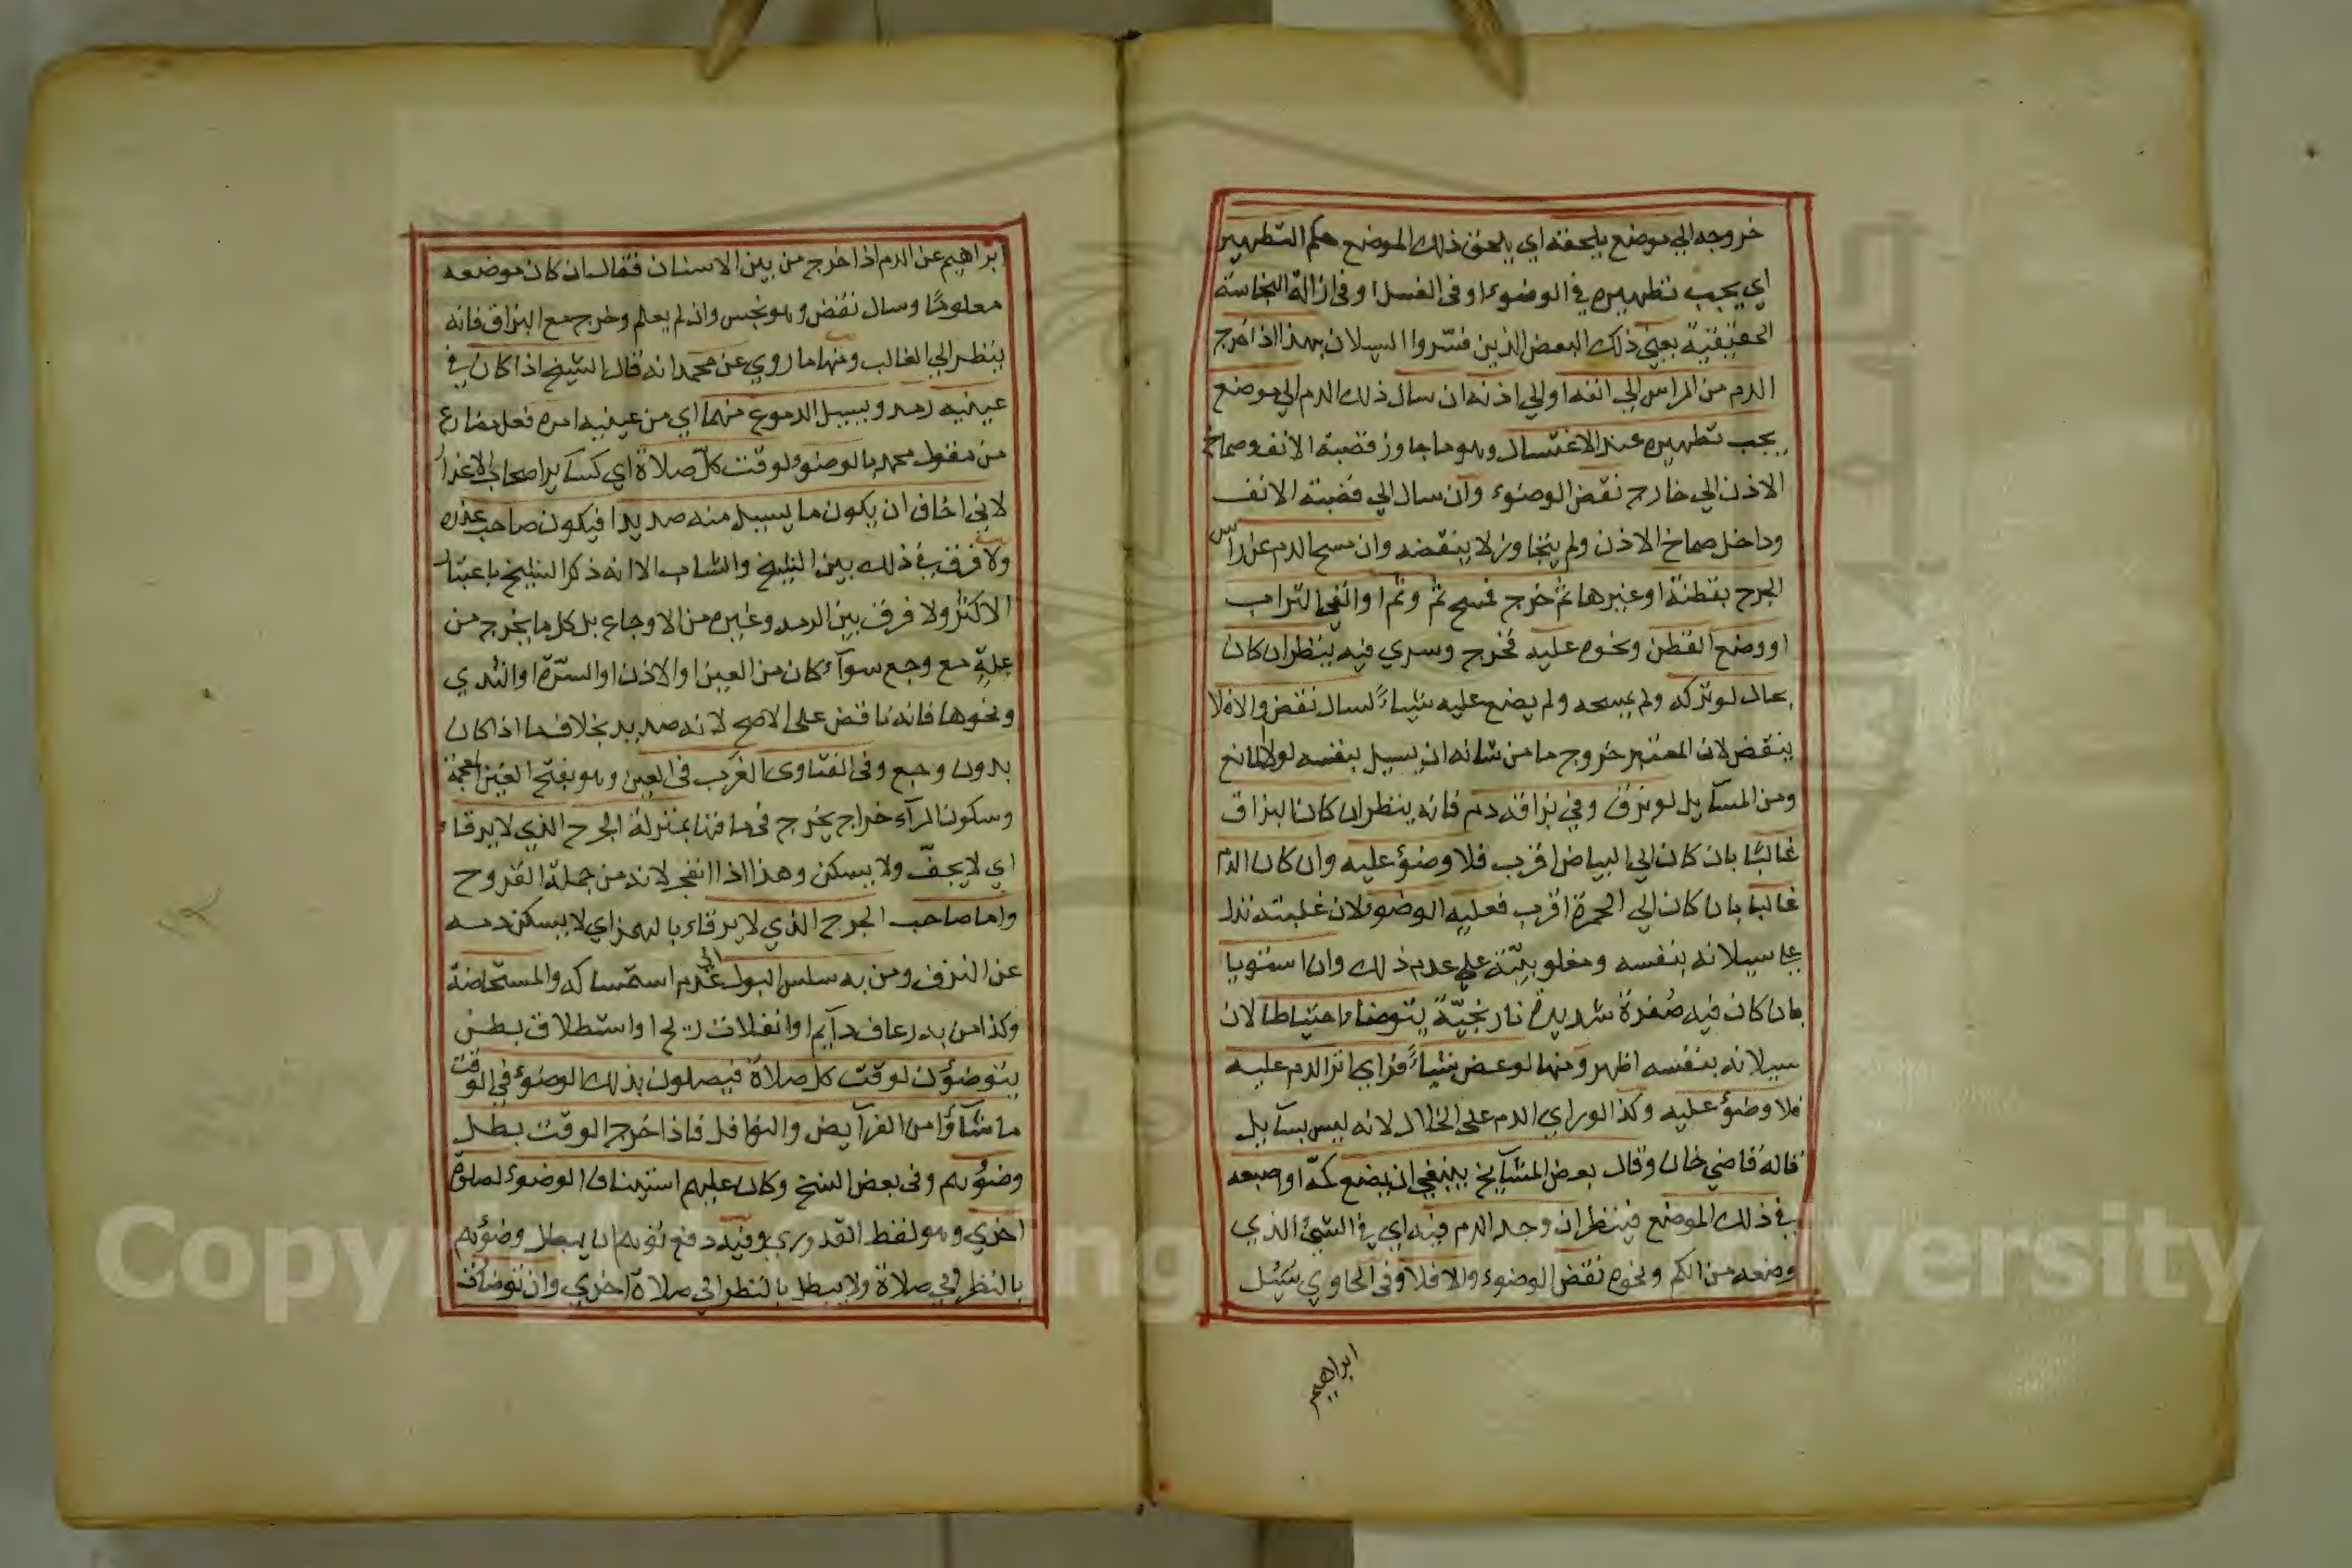 خروجه الي موضع يلحقه اي يلحق ذلك الموضع حكم التطهير
اي يجب تطهيره في الوضوء او في الغسل او في ازالة النجاسة
الحقيقية يعني ذلك البعض الذين فسّروا السيلان بهذا اذا خرج
الدم من الراس الي انفه او الي اذنه ان سال ذلك الدم الي موضع
يجب تطهيره عند الاغتسال وهو ما جاوز قصبة الانف وصماخ
الاذن الي خارج نقض الوضوء وان سال الي قصبة الانف
وداخل صماخ الاذن ولم يتجاوز لا ينقضه وان مسح الدم عن راس
الجرح بقطنة او غيرها ثم خرج فمسح ثم وثم او القي التراب
او وضع القطن ونحوه عليه فخرج وسري فيه ينظر ان كان
بحال لو تركه ولم يمسحه ولم يضع عليه شياءً لسال نقض والا فلا
ينقض لان المعتبر خروج ما من شانه ان يسيل بنفسه لولا المانع
ومن المسآيل لو بزق وفي بزاقه دم فانه ينظر ان كان البزاق
غالبًا بان كان الي البياض اقرب فلا وضؤ عليه وان كان الدم
غالبا بان كان الي الحمرة اقرب فعليه الوضوء لان غلبته تدل
علي سيلانه بنفسه ومغلوبيّته علي عدم ذلك وان استويا
بان كان فيه صُفرة شديدة نارنجيّة يتوضا احتياطا لان
سيلانه بنفسه اظهر ومنها لو عض شياءً فراي اثر الدم عليه
فلا وضؤ عليه وكذا لو راي الدم على الخلال لانه ليس بسآيل
قاله قاضي خان وقال بعض المشآيخ ينبغي ان يضع كمّه او اصبعه
في ذلك الموضع فينظر ان وجد الدم فيه اي في الشئ الذي
وضعه من الكم ونحوه نقض الوضوء والا فلا وفي الحاوي سُئِل
ابراهيم
ابراهيم عن الدم اذا خرج من بين الاسنان فقال ان كان موضعه
معلومًا وسال نقض وهو نجس وان لم يعلم وخرج مع البزاق فانه
ينظر الي الغالب ومنها ما روي عن محمد انه قال الشيخ اذا كان في
عينيه رمد ويسيل الدموع منهما اي من عينيه امره فعل مضارع
من مقول محمد بالوضوء لوقت كلّ صلاة اي كسآير اصحاب الاعذار
لاني اخاف ان يكون ما يسيل منه صديدا فيكون صاحب عذره
ولا فرق في ذلك بين الشيخ والشاب الا انه ذكر الشيخ باعتبار
الاكثر ولا فرق بين الرمد وغيره من الاوجاع بل كل ما يخرج من
علةٍ مع وجع سوآء كان من العين او الاذن او السرّة او الثدي
ونحوها فانه ناقض على الاصح لانه صديد بخلاف ما اذا كان
بدون وجع وفى الفتاوى الغَرب فى العين وهو بفتح الغين المعجمة
وسكون الرآء خراج يخرج في ماقها بمنزلة الجرح الذي لا يرقاء
اي لا يجفّ ولا يسكن وهذا اذا انفجر لانه من جملة القروح
واما صاحب الجرح الذي لا يرقاء بالهمز اي لا يسكن دمه
عن النزف ومن به سلس البول اي عدم استمساكه والمستحاضة
وكذا من به رعاف دآيم او انفلات ريح او استطلاق بطن
يتوضؤن لوقت كل صلاة فيصلون بذلك الوضوء في الوقت
ما شآؤا من الفرآيض والنوافل فاذا خرج الوقت بطل
وضوُهم وفى بعض النسخ وكان عليهم استيناف الوضوء لصلوة
اخري وهو لفظ القدوري وفيه دفع توهم ان يبطل وضؤهم
بالنظر الي صلاة ولا يبطل بالنظر الي صلاة اخري وان توضأت